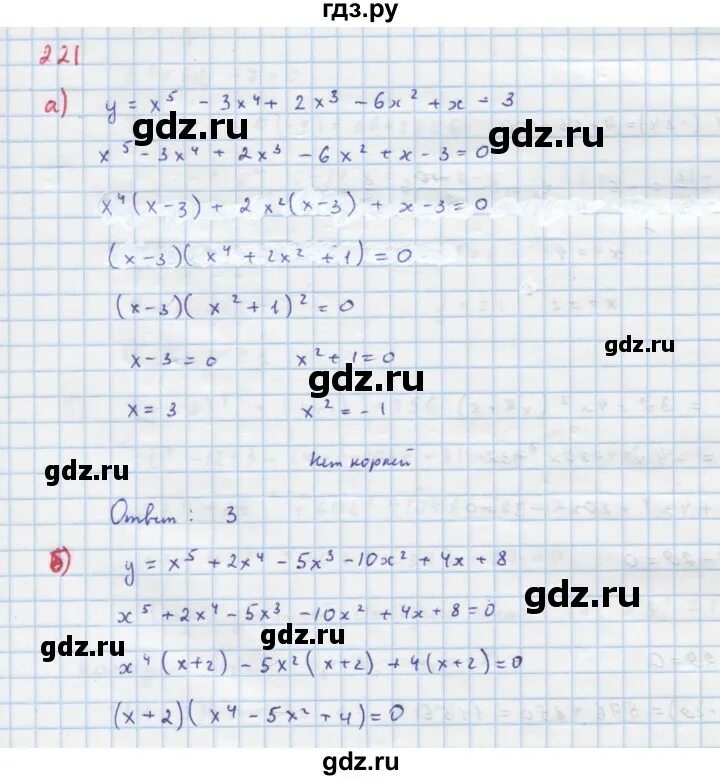 гдз.ру
221
а) y = x⁵ - 3x⁴ + 2x³ - 6x² + x - 3
gdz.ru
gdz.ru
x⁵ - 3x⁴ + 2x³ - 6x² + x - 3 = 0
x⁴(x-3) + 2x²(x-3) + x-3 = 0
(x-3)(x⁴ + 2x² + 1) = 0
(x-3)(x² + 1)² = 0
gdz.ru
x-3 = 0 x² + 1 = 0
gdz.ru
x = 3 x² = -1
gdz.ru
Нет корней
Ответ: 3
б) y = x⁵ + 2x⁴ - 5x³ - 10x² + 4x + 8
gdz.ru
x⁵ + 2x⁴ - 5x³ - 10x² + 4x + 8 = 0
gdz.ru
gdz.ru
x⁴(x+2) - 5x²(x+2) + 4(x+2) = 0
(x+2)(x⁴ - 5x² + 4) = 0
gdz.ru